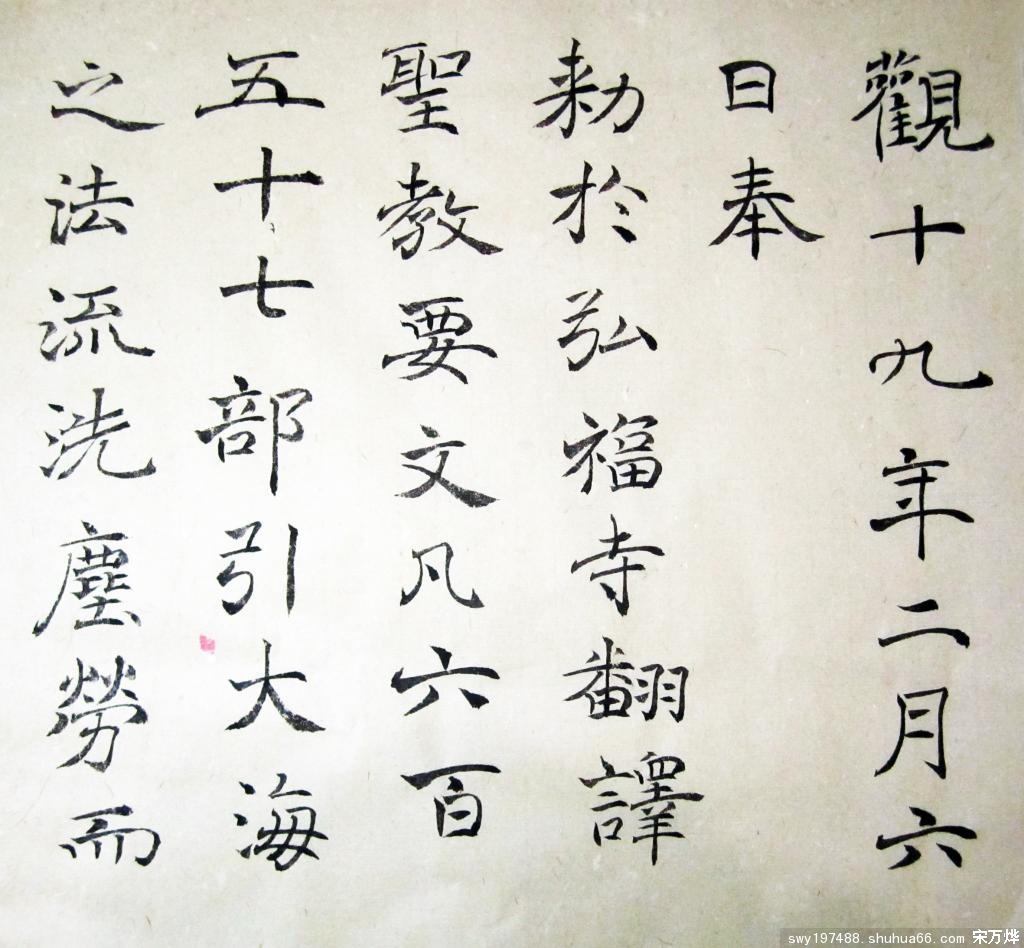 觀十九年二月六
日奉
勅於弘福寺翻譯
聖教要文凡六百
五十七部引大海
之法流洗塵勞而
swy197488.shuhua66.com 宋万烨